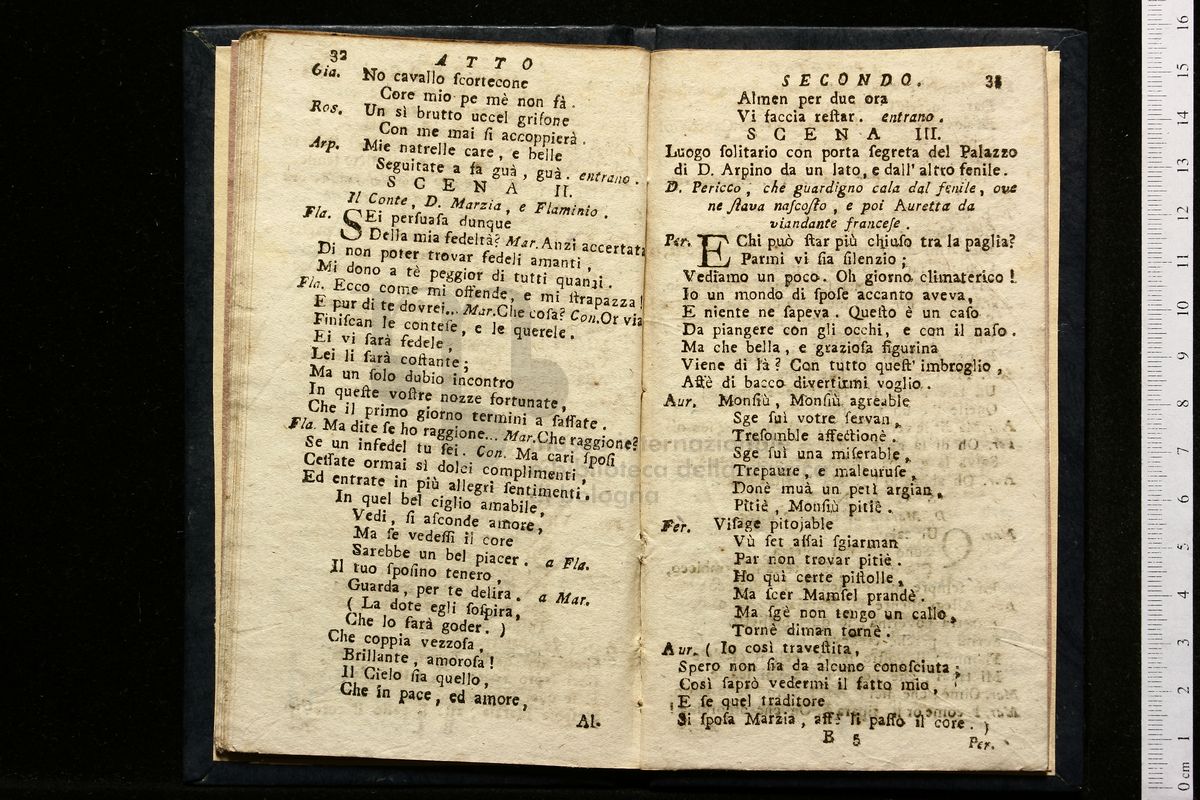 32
ATTO
Gia. No cavallo ſcortecone
Core mio pe mè non fà.
Ros. Un sì brutto uccel grifone
Con me mai ſi accoppierà.
Arp. Mie natrelle care, e belle
Seguitate a fa guà, guà. entrano.
SCENA II.
Il Conte, D. Marzia, e Flaminio.
Fla. SEi perſuaſa dunque
Della mia fedeltà? Mar. Anzi accertata
Di non poter trovar fedeli amanti,
Mi dono a tè peggior di tutti quanti.
Fla. Ecco come mi offende, e mi ſtrapazza!
E pur di te dovrei... Mar. Che coſa? Con. Or via
Finiſcan le conteſe, e le querele.
Ei vi farà fedele,
Lei li ſarà coſtante;
Ma un ſolo dubio incontro
In queſte voſtre nozze fortunate,
Che il primo giorno termini a ſaſſate.
Fla. Ma dite ſe ho raggione... Mar. Che raggione?
Se un infedel tu ſei. Con. Ma cari ſpoſi
Ceſſate ormai sì dolci complimenti,
Ed entrate in più allegri ſentimenti.
In quel bel ciglio amabile,
Vedi, ſi aſconde amore,
Ma ſe vedeſſi il core
Sarebbe un bel piacer. a Fla.
Il tuo ſpoſino tenero,
Guarda, per te delira. a Mar.
( La dote egli ſoſpira,
Che lo farà goder. )
Che coppia vezzoſa,
Brillante, amoroſa!
Il Cielo ſia quello,
Che in pace, ed amore,
Al.
SECONDO. 33
Almen per due ora
Vi faccia reſtar. entrano.
SCENA III.
Luogo ſolitario con porta ſegreta del Palazzo
di D. Arpino da un lato, e dall'altro fenile.
D. Pericco, che guardigno cala dal fenile, ove
ne ſtava naſcoſto, e poi Auretta da
viandante franceſe.
Per. E Chi può ſtar più chiuſo tra la paglia?
Parmi vi ſia ſilenzio;
Vediamo un poco. Oh giorno climaterico!
Io un mondo di ſpoſe accanto aveva,
E niente ne ſapeva. Queſto è un caſo
Da piangere con gli occhi, e con il naſo.
Ma che bella, e grazioſa figurina
Viene di là? Con tutto queſt' imbroglio,
Affè di bacco divertirmi voglio.
Aur. Monſiù, Monſiù agreable
Sge ſuì votre ſervan,
Treſomble affectionè.
Sge ſuì una miſerable,
Trepaure, e maleuruſe,
Donè muà un peti argian,
Pitiè, Monſiù pitiè.
Per. Viſage pitojable
Vù ſet aſſai ſgiarman
Par non trovar pitiè.
Ho quì certe piſtolle,
Ma ſcer Mamſel prandè.
Ma ſgè non tengo un callo,
Tornè diman tornè.
Aur. ( Io così traveſtita,
Spero non ſia da alcuno conoſciuta;
Così ſaprò vedermi il fatto mio,
E ſe quel traditore
Si ſpoſa Marzia, affè li paſſo il core. )
B 5
Per.